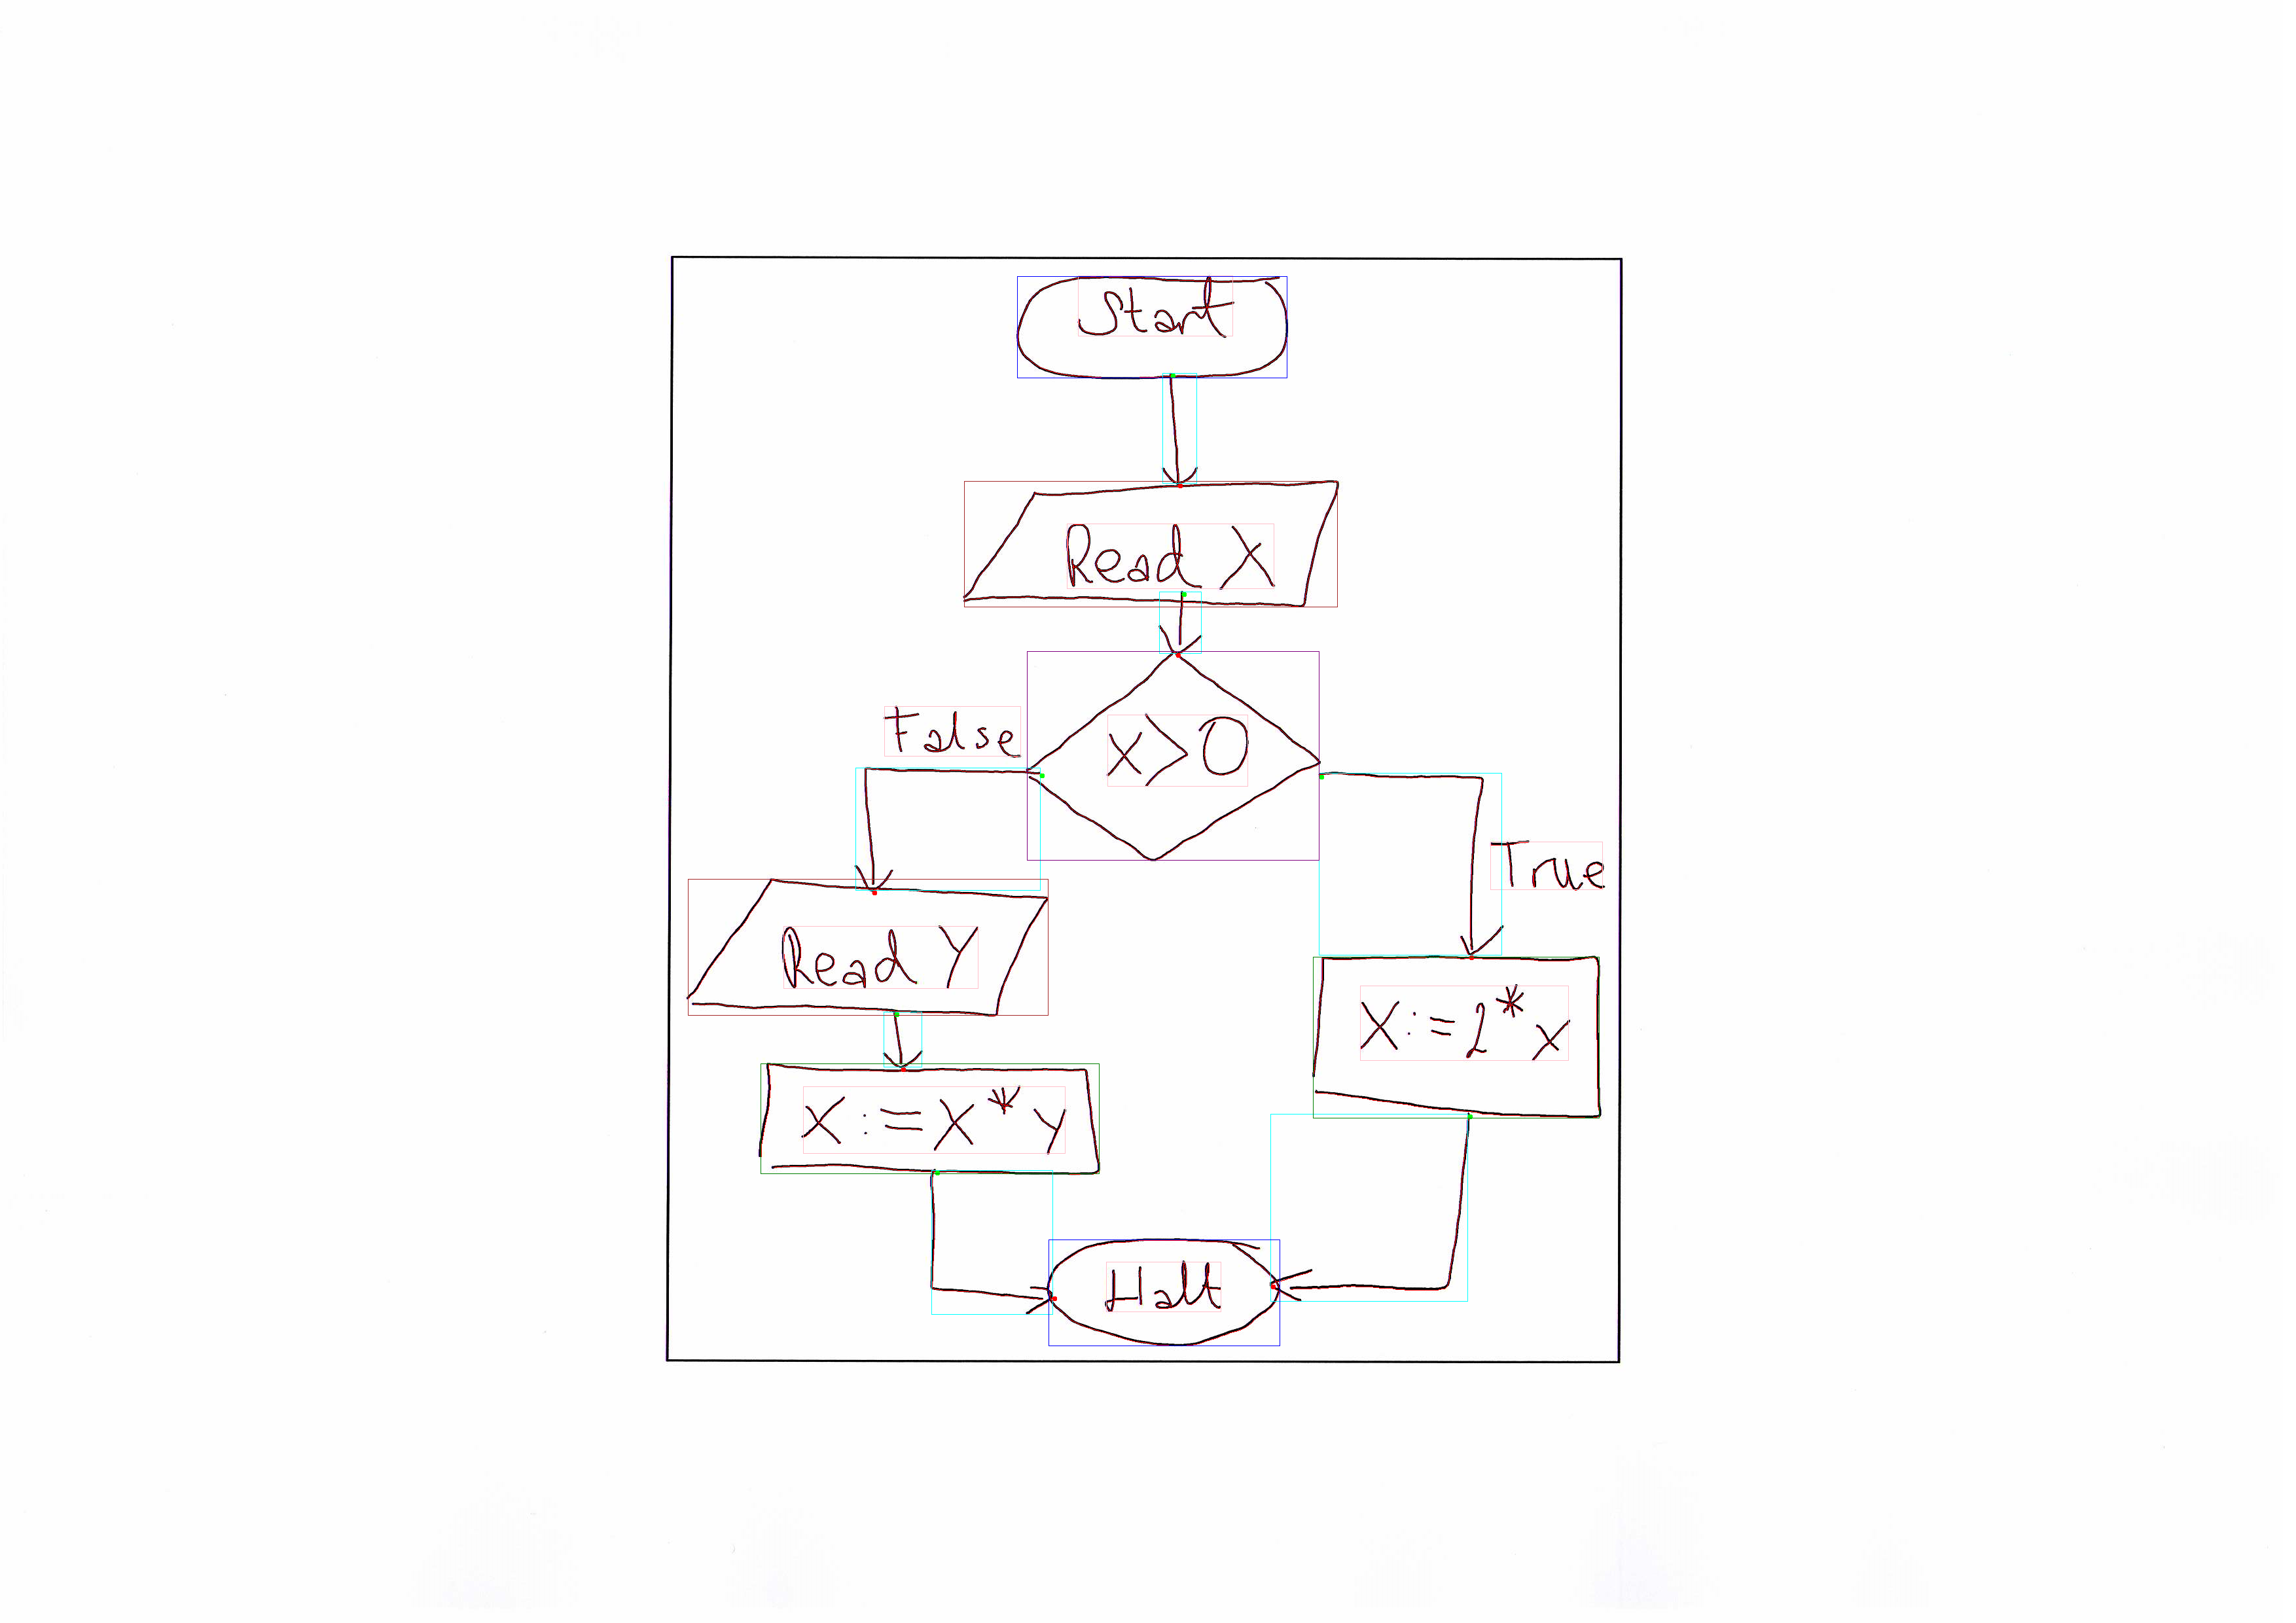 Start
Read X
X>0
False
True
Read Y
X:=2*x
X:=X*Y
Halt